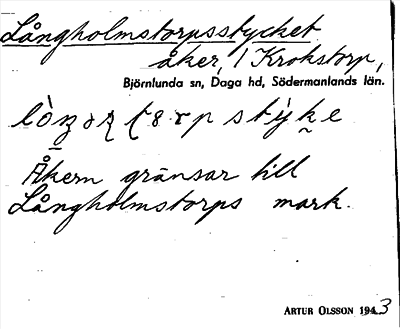 Långholmstorpsstycket
åker, / Krokstorp,
Björnlunda sn, Daga hd, Södermanlands län.
Åkern gränsar till
Långholmstorps mark.
ARTUR OLSSON 1943